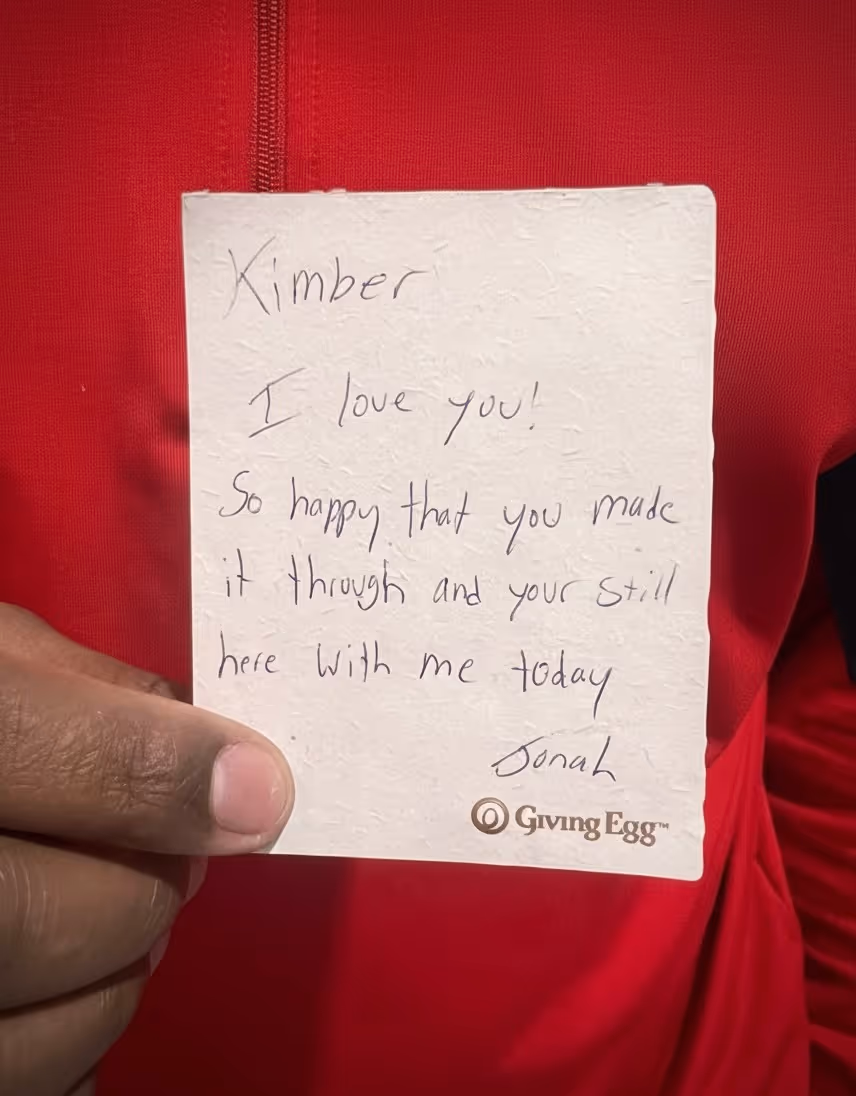 Kimber
I love you!
So happy that you made
it through and your still
here with me today
Jonah
Giving Egg™